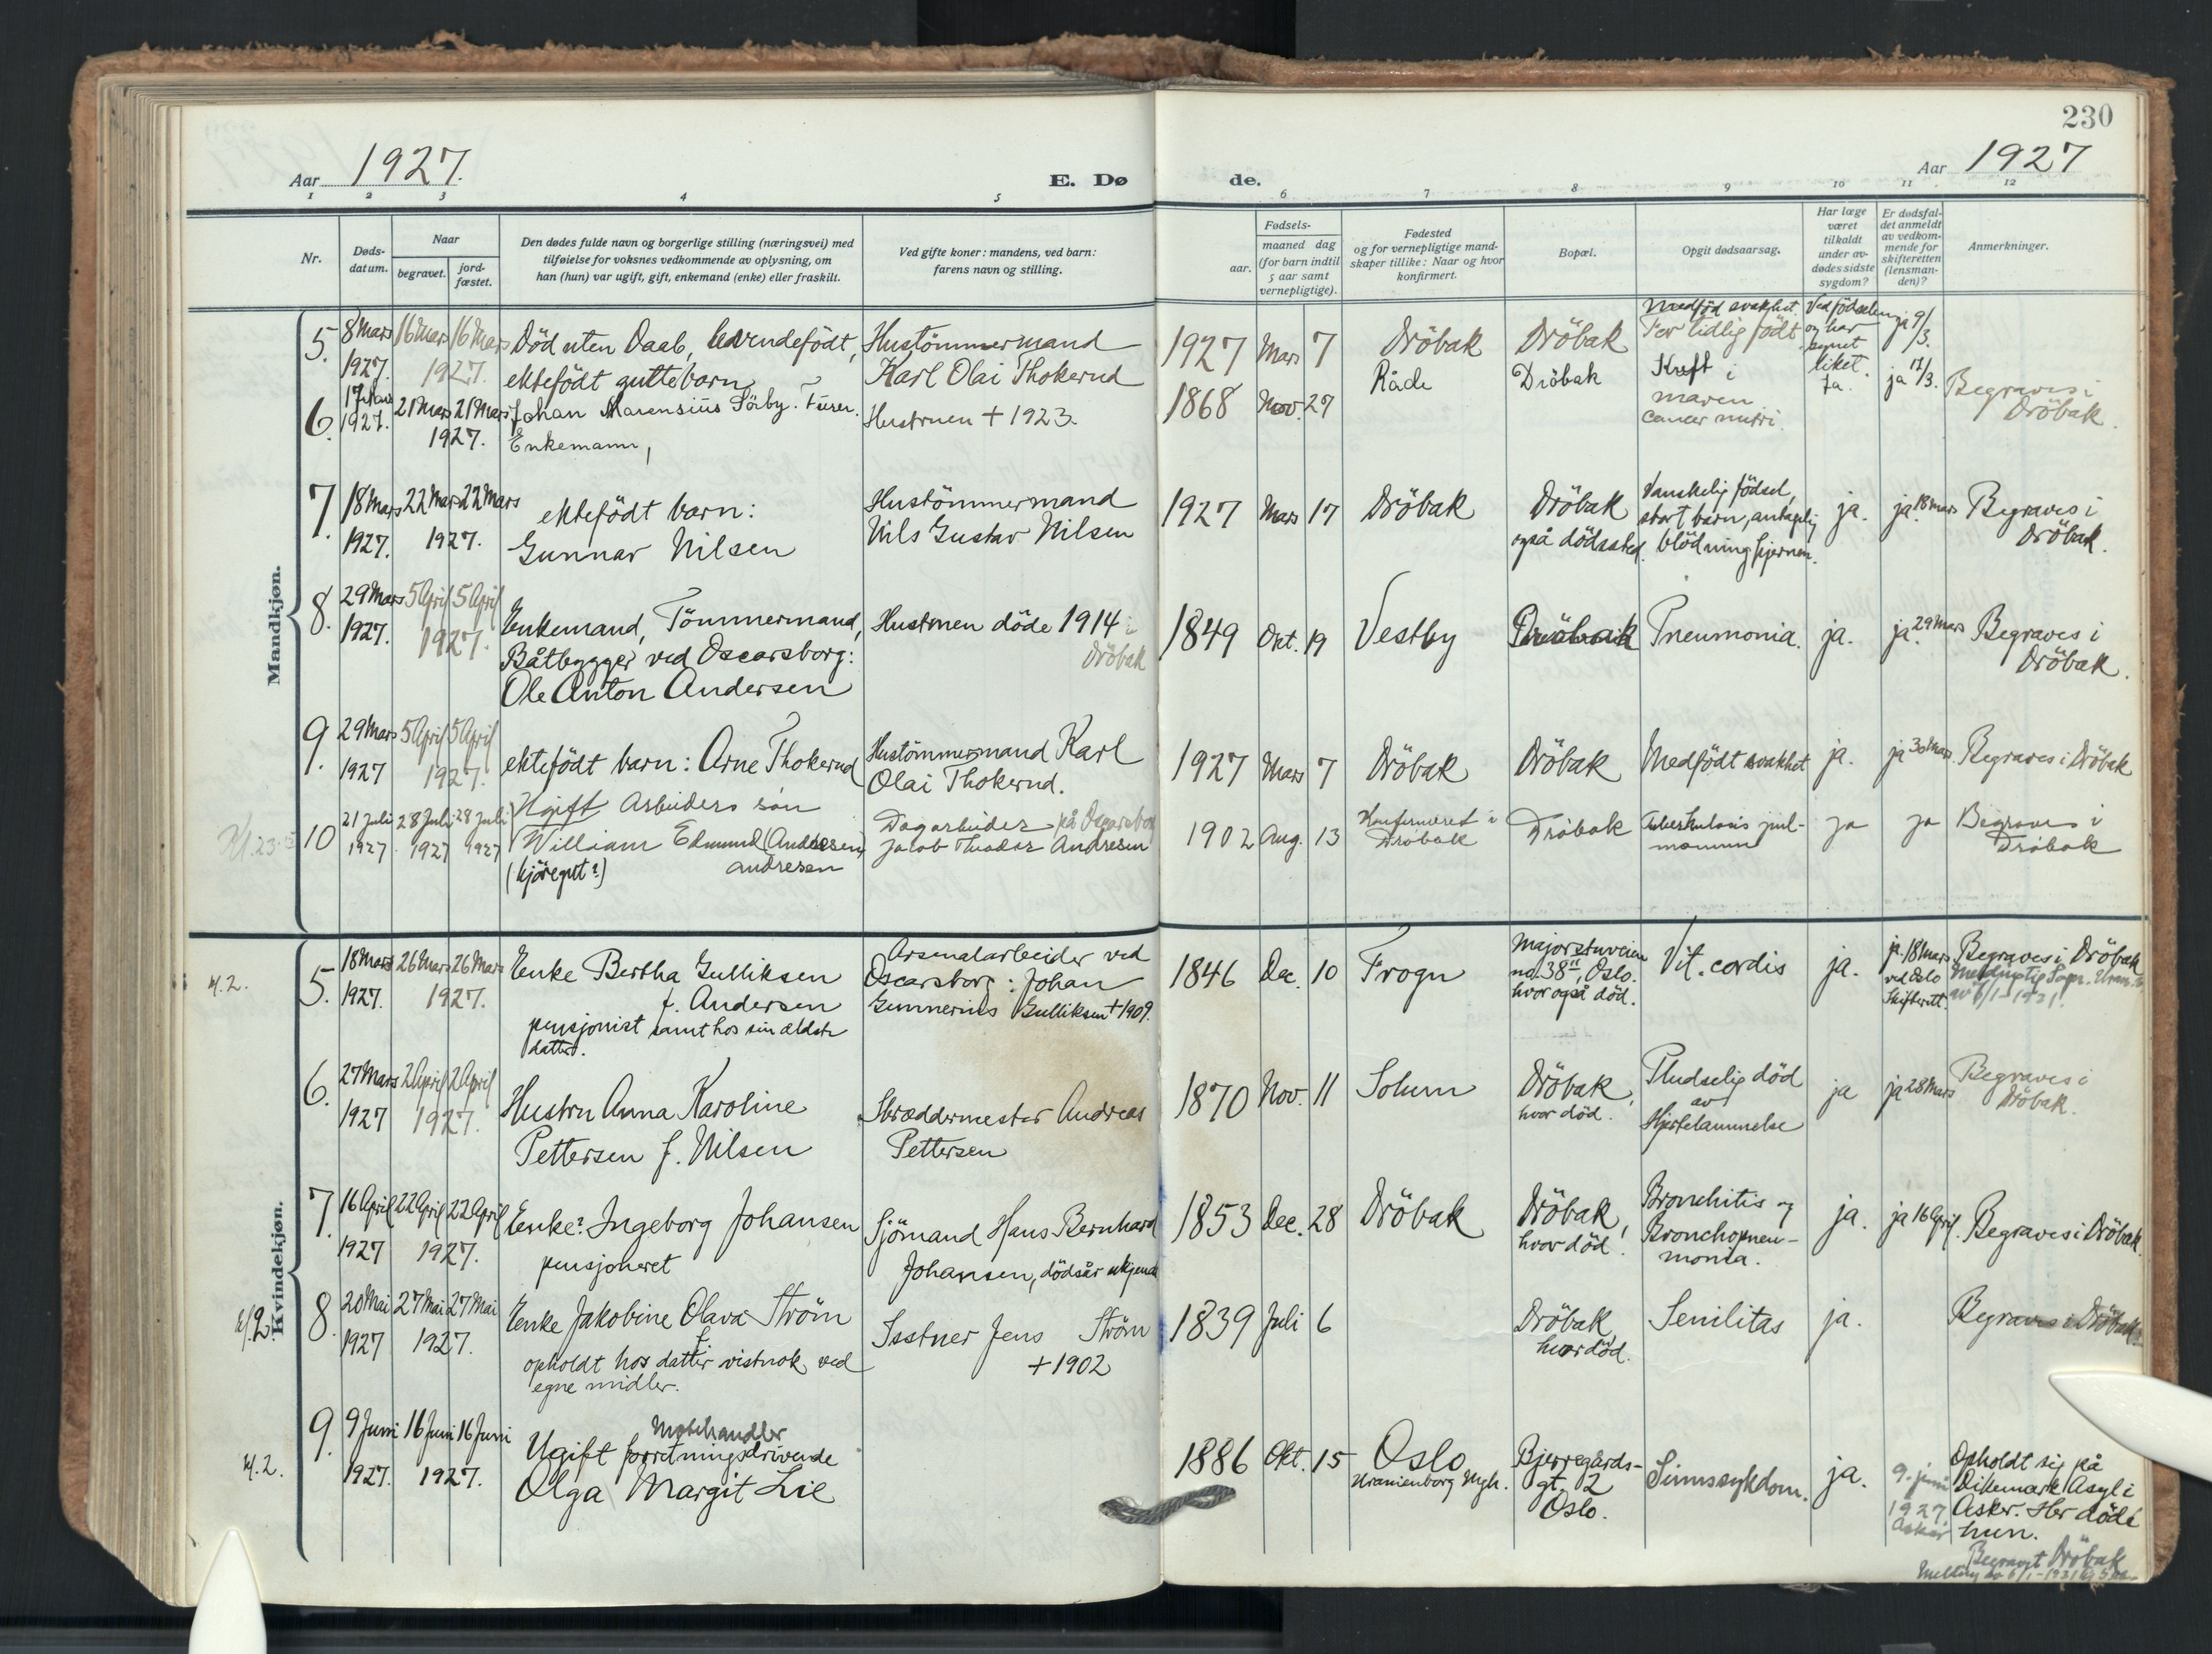 230
Aar 1927.
E. Dø
de.
Aar 1927
1 2 3 4 5 6 7 8 9 10 11 12
Nr.
Døds-
datum.
Naar
begravet.
jord-
fæstet.
Den dødes fulde navn og borgerlige stilling (næringsvei) med
tilføielse for voksnes vedkommende av oplysning, om
han (hun) var ugift, gift, enkemand (enke) eller fraskilt.
Ved gifte koner: mandens, ved barn:
farens navn og stilling.
Fødsels-
aar.
maaned dag
(for barn indtil
5 aar samt
vernepligtige).
Fødested
og for vernepligtige mand-
skaper tillike: Naar og hvor
konfirmert.
Bopæl.
Opgit dødsaarsag.
Har læge
været
tilkaldt
under av-
dødes sidste
sygdom?
Er dødsfal-
det anmeldt
av vedkom-
mende for
skifteretten
(lensman-
den)?
Anmerkninger.
Mandkjøn.
5.
8 Mars
1927.
16 Mars 16 Mars
1927.
Död uten Daab, levendefödt,
ektefödt guttebarn
Hustömmermand
Karl Olai Thokerud
1927 Mars 7
Dröbak
Dröbak
Medföd svakhet.
For tidlig födt
Ved födselen
og har
synet
liket.
ja 9/3.
6.
17 Mars
1927.
21 Mars 21 Mars
1927.
Johan Marensius Sörby.
Enkemann,
Hustruen + 1923.
1868 Nov. 27
Råde
Dröbak
Kreft i
maven
cancer
Ja.
ja 17/3.
Begraves i
Dröbak.
7.
18 Mars
1927.
22 Mars 22 Mars
1927.
ektefödt barn:
Gunnar Nilsen
Hustömmermand
Nils Gustav Nilsen
1927 Mars 17
Dröbak
Dröbak
også dödssted.
Vanskelig födsel,
stort barn, antagelig
blödning hjernen.
ja.
ja 18 Mars
Begraves i
Dröbak.
8.
29 Mars
1927.
5 April 5 April
1927.
Enkemand, Tömmermand,
Båtbygger ved Oscarsborg:
Ole Anton Andersen
Hustruen döde 1914 i
Dröbak
1849 Okt. 19
Vestby
Dröbak
Pneumonia.
ja.
ja 29 Mars
Begraves i
Dröbak.
9.
29 Mars
1927
5 April 5 April
1927.
ektefödt barn: Arne Thokerud
Hustömmermand Karl
Olai Thokerud.
1927 Mars 7
Dröbak
Dröbak
Medfödt svakhet
ja.
ja 30 Mars
Begraves i Dröbak
10
21 Juli
1927
28 Juli 28 Juli
1927 1927
Ugift Arbeiders sön
William Edmund (Andresen)
Andresen
(kjöregutt?)
Dagarbeider på Oscarsborg
Jacob Theodor Andresen
1902 Aug. 13
Konfirmeret i
Dröbak
Dröbak
Tuberkulosis pul-
monum
ja
ja
Begraves i
Dröbak
Kvindekjøn.
kl. 2.
5.
18 Mars
1927.
26 Mars 26 Mars
1927.
Enke Bertha Gulliksen
f. Andersen
pensjonist samt hos sin eldste
datter.
Arsenalarbeider ved
Oscarsborg: Johan
Gunnerius Gulliksen + 1909.
1846 Dec. 10
Frogn
Majorstuveien
no. 38, Oslo.
hvor også död.
Vit. cordis
ja.
ja. 18 Mars
ved Oslo
Skifterett.
Begraves i Dröbak
av 6/1-1931.
6.
27 Mars
1927
2 April 2 April
1927.
Hustru Anna Karoline
Pettersen f. Nilsen
Skræddermester Andreas
Pettersen
1870 Nov. 11
Solum
Dröbak,
hvor död.
Pludselig död
av
Hjertelammelse
ja
ja 28 Mars
Begraves i
Dröbak.
7.
16 April
1927
22 April 22 April
1927.
Enke? Ingeborg Johansen
pensjoneret
Sjömand Hans Bernhard
Johansen, dödsår ukjendt
1853 Dec. 28
Dröbak
Dröbak,
hvor död.
Bronchitis og
Bronchopneu-
monia.
ja.
ja 16 April.
Begraves i Dröbak.
kl. 2
8.
20 Mai
1927
27 Mai 27 Mai
1927.
Enke Jakobine Olava Ström
f.
opholdt hos datter vistnok ved
egne midler.
Jens Ström
+ 1902
1839 Juli 6
Dröbak,
hvor död.
Senilitas
ja.
Begraves i Dröbak
kl. 2.
9.
9 Juni
1927.
16 Juni 16 Juni
1927.
Motehandler
Ugift forretningsdrivende
Olga Margit Lie
1886 Okt. 15
Oslo
Uranienborg Mgh.
Bjerregårds-
gt. 2
Oslo.
Sinnssykdom.
ja.
9. juni
1927
Asker
Opholdt sig på
Dikemark Asyl i
Asker. Her döde
hun.
Begravet Dröbak
6/1-1931